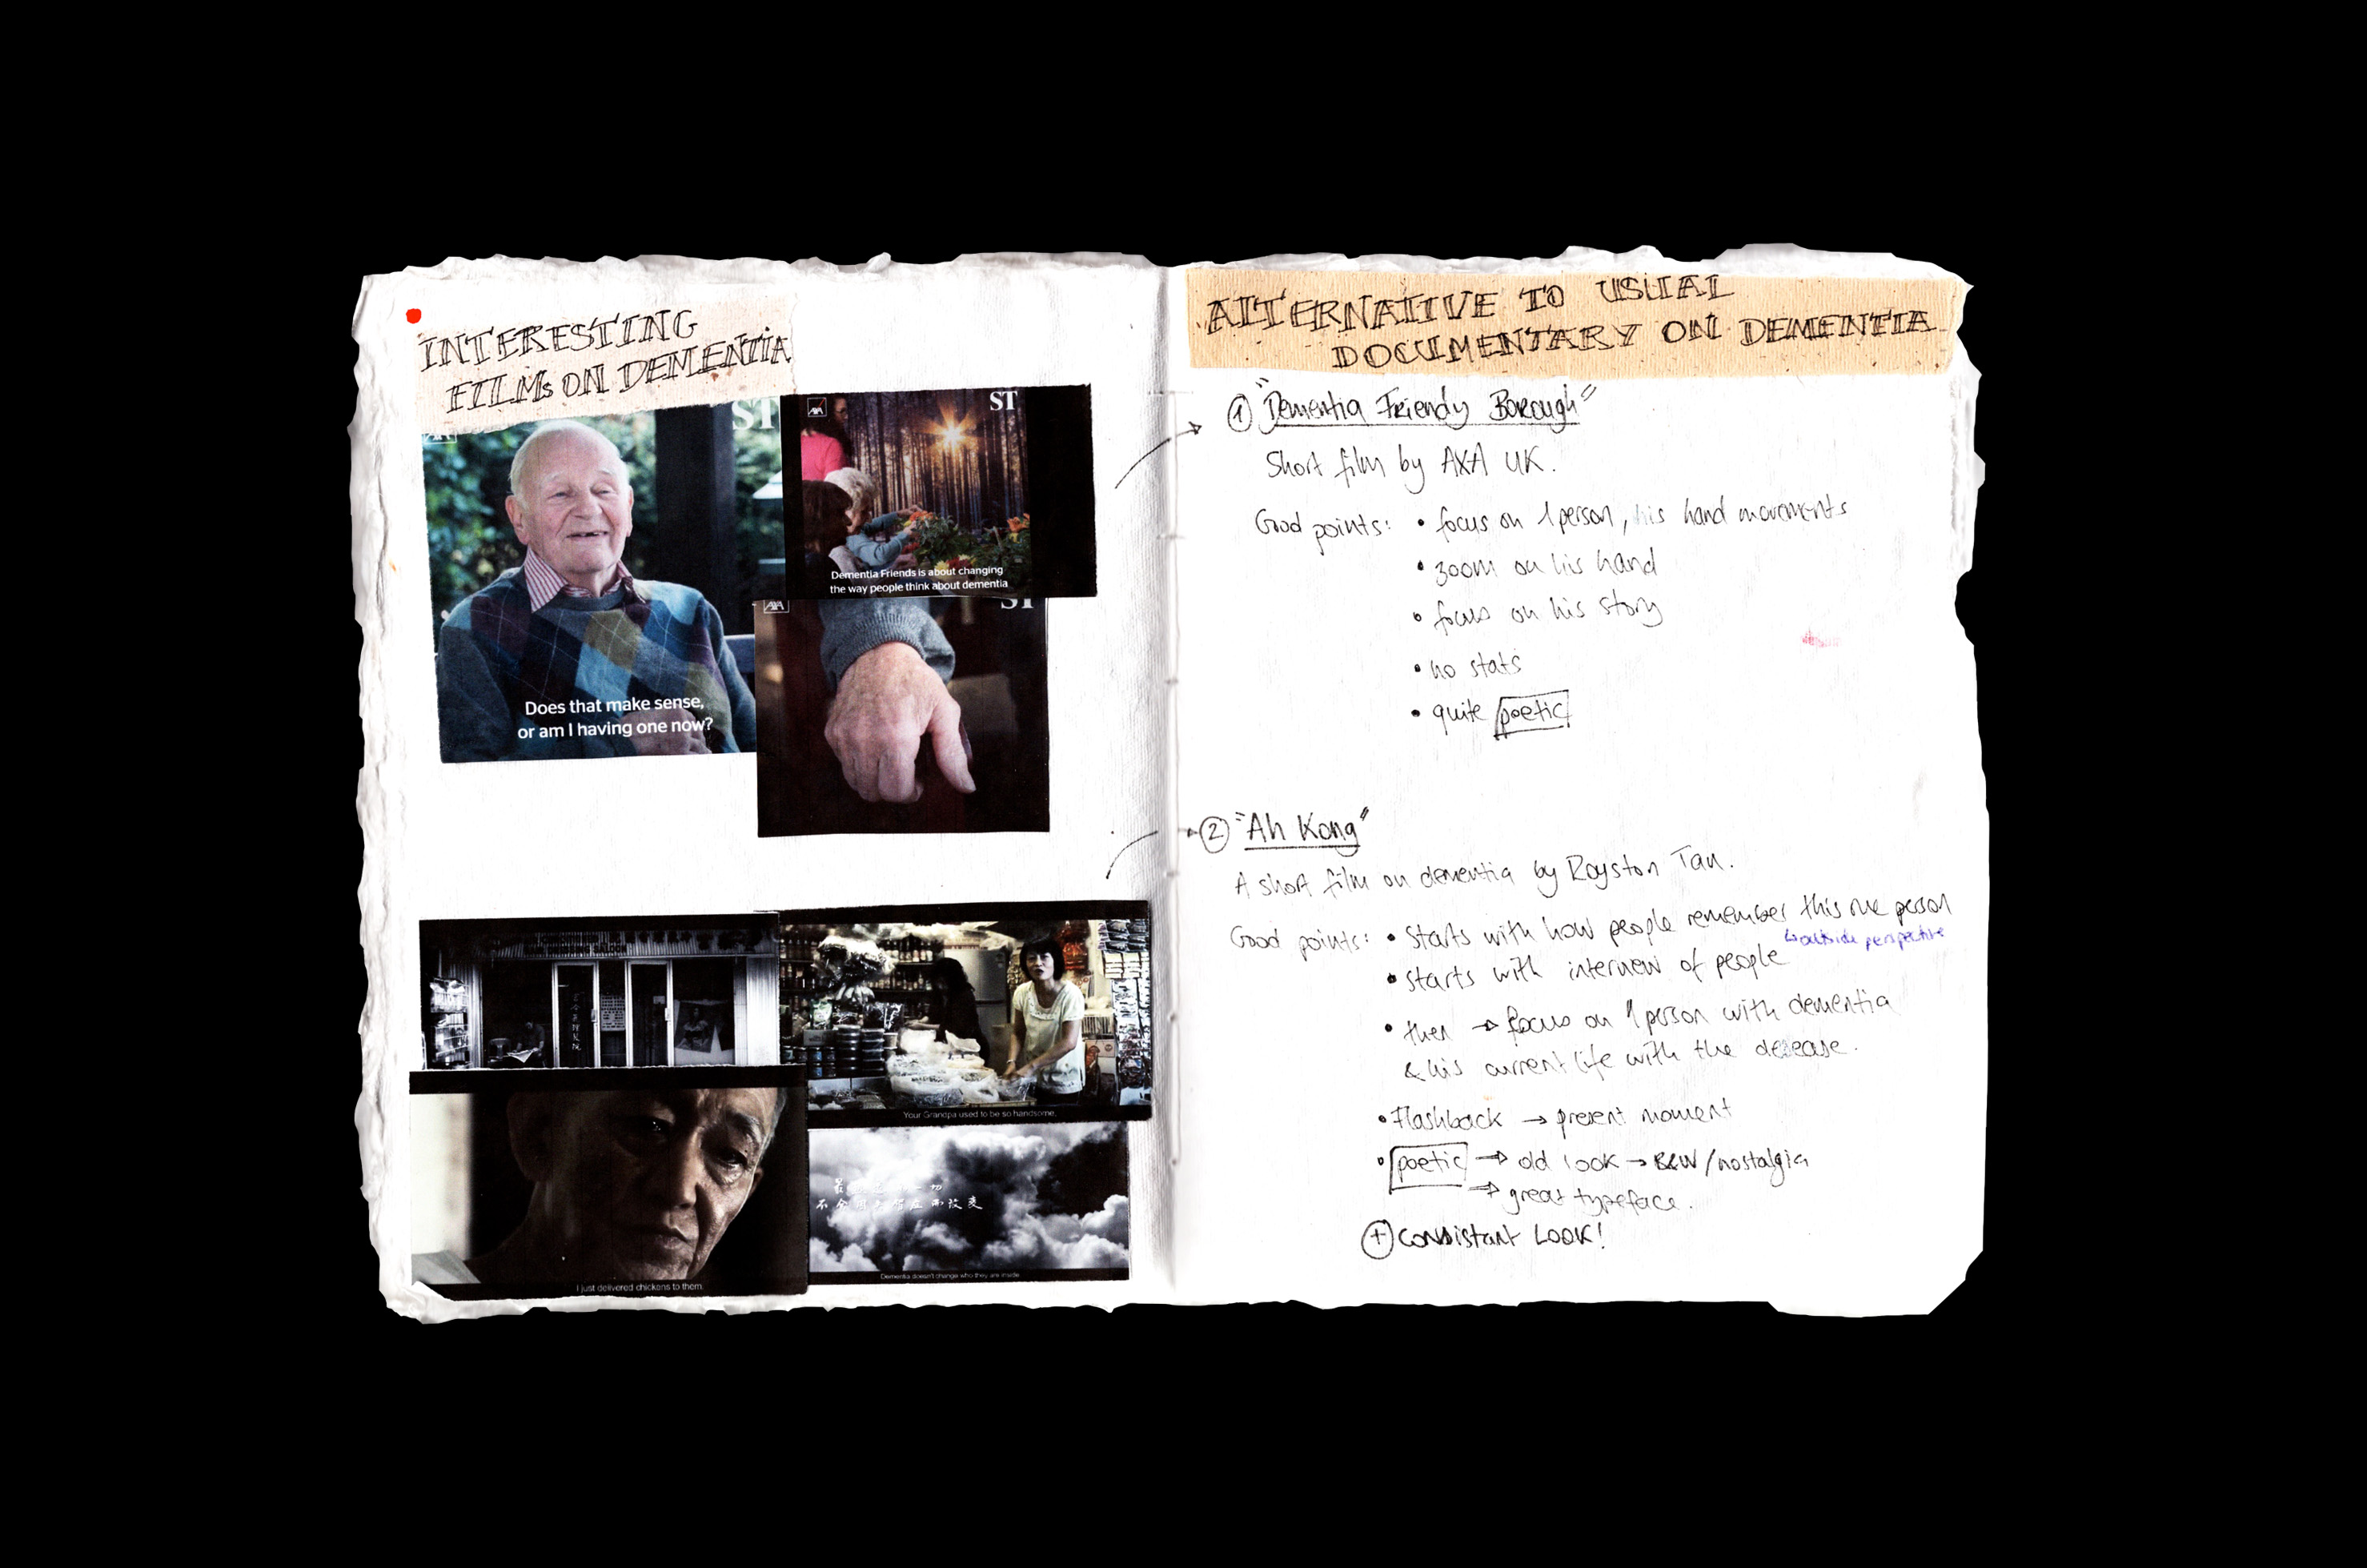 INTERESTING
FILMs ON DEMENTIA
ST
AXA
ST
Does that make sense,
or am I having one now?
Dementia Friends is about changing
the way people think about dementia
AXA
ST
Your Grandpa used to be so handsome.
I just delivered chickens to them.
一切
不会 而改变
Dementia doesn't change who they are inside
ALTERNATIVE TO USUAL
DOCUMENTARY ON DEMENTIA
① "Dementia Friendy Borough"
Short film by AXA UK.
Good points: • focus on 1 person, his hand movements
• zoom on his hand
• focus on his story
• no stats
• quite poetic
② "Ah Kong"
A short film on dementia by Royston Tan.
Good points: • starts with how people remember this one person
↳ outside perspective
• starts with interview of people
• then → focus on 1 person with dementia
& his current life with the desease.
• Flashback → present moment
• poetic → old look → B&W/nostalgia
→ great typeface.
⊕ consistant LOOK!